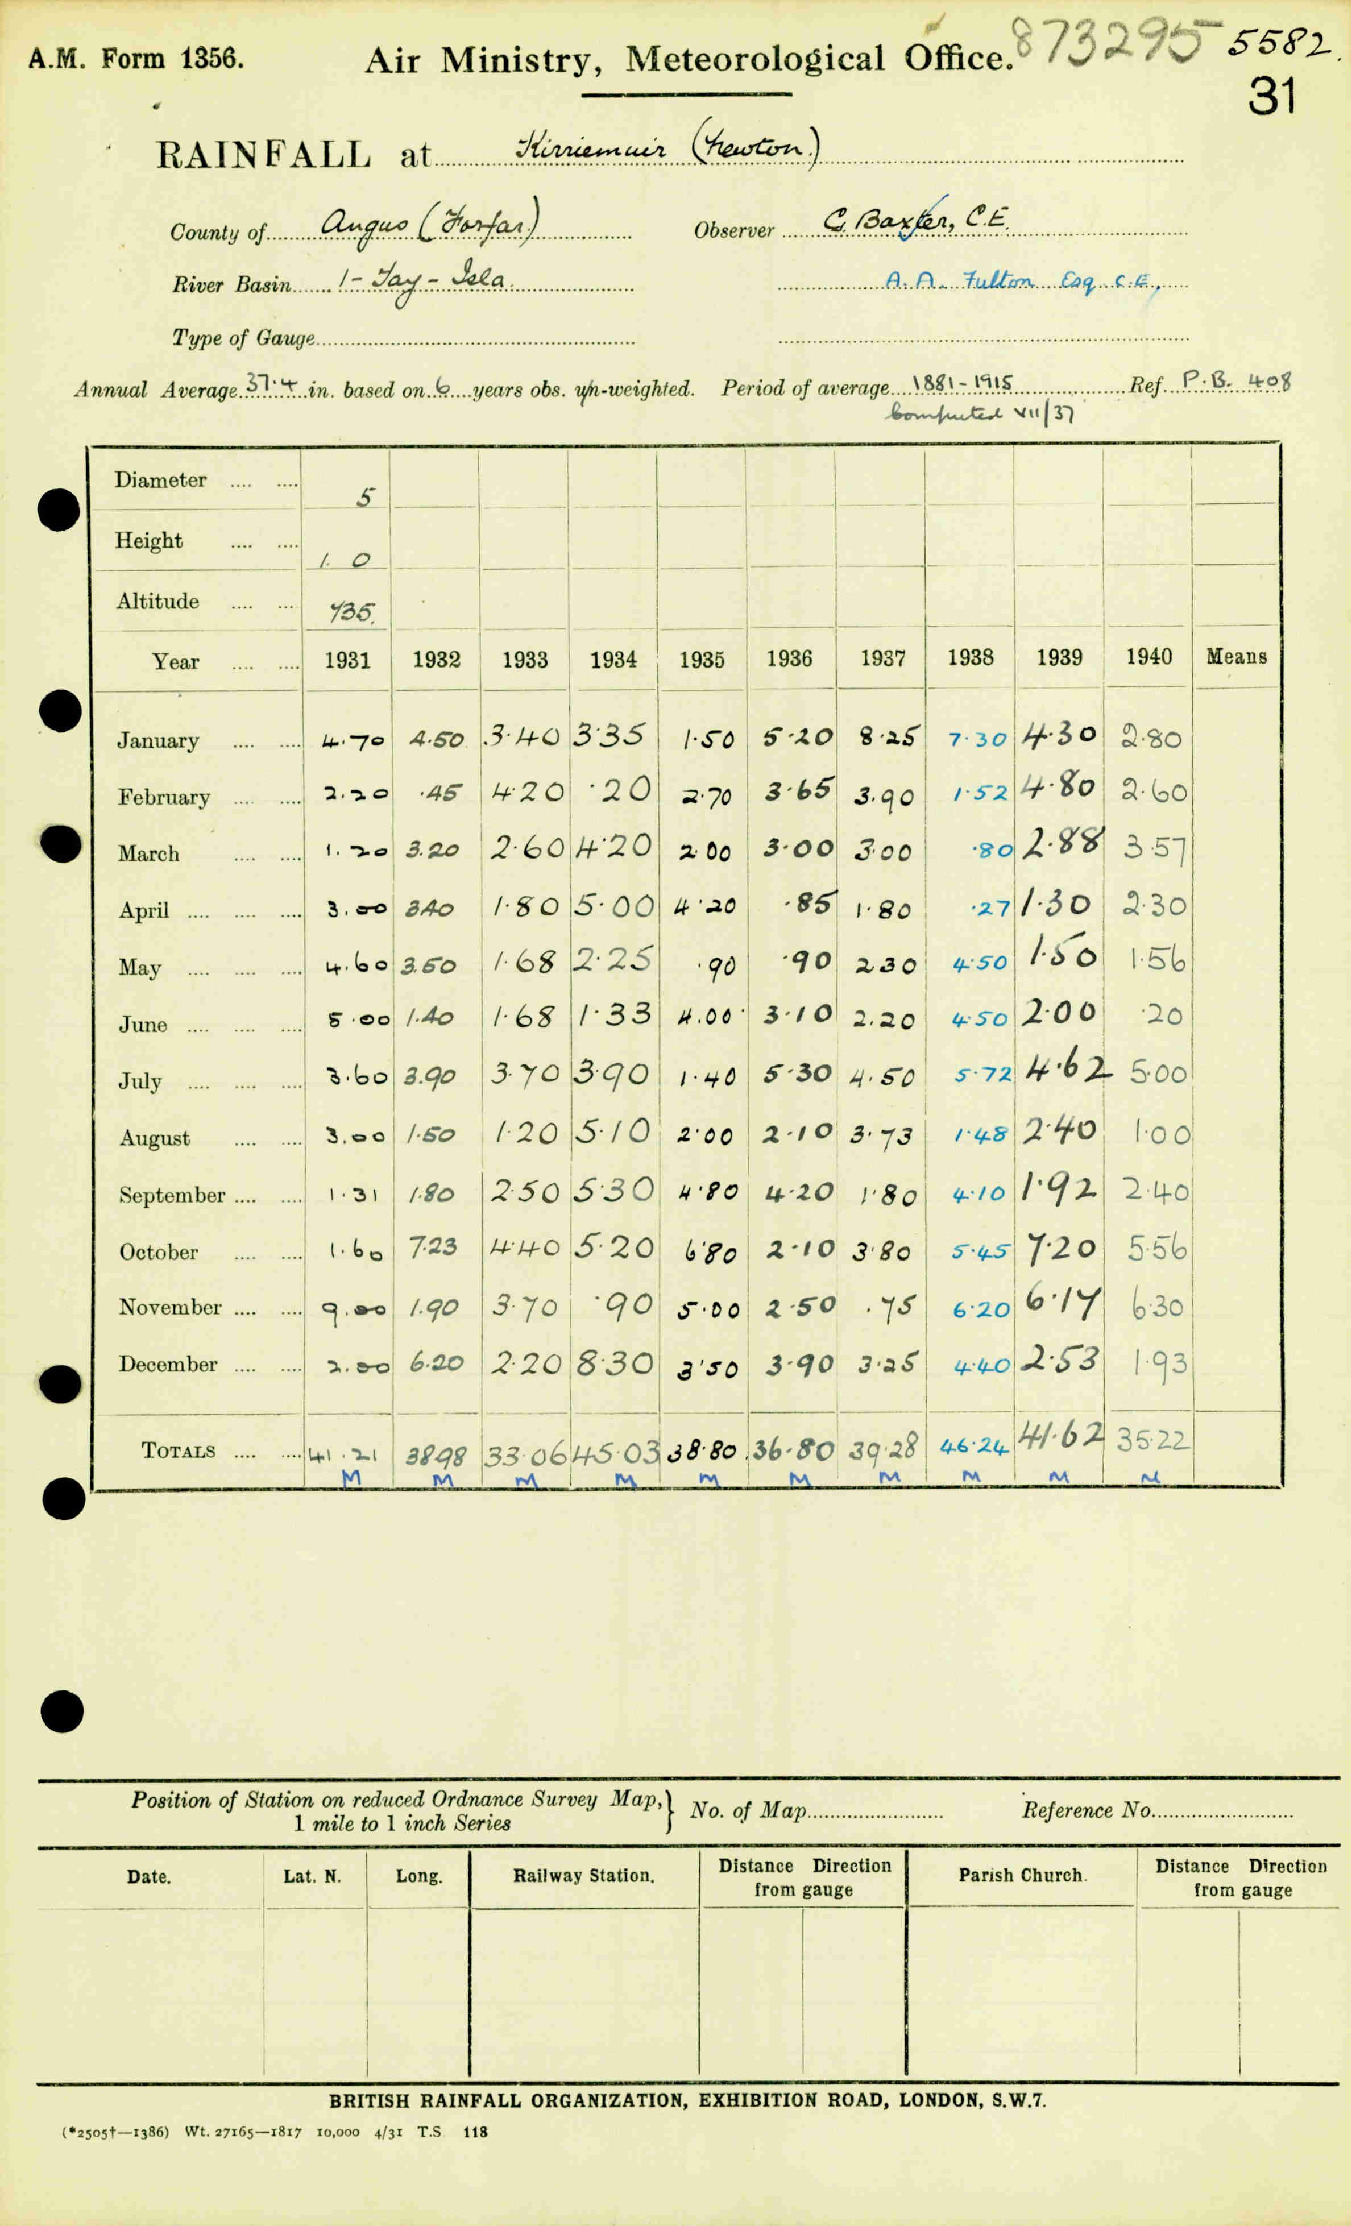 A.M. Form 1356. Air Ministry, Meteorological Office. 873295 5582.
31
RAINFALL at Kirriemuir (Newton)
County of Angus (Forfar) Observer G. Baxter, C.E.
River Basin 1 - Tay - Isla A. A. Fulton Esq C.E,
Type of Gauge
Annual Average 37.4 in. based on 6 years obs. un-weighted. Period of average 1881-1915 Ref. P.B. 408
Computed VII/37
Diameter 5
Height 1. 0
Altitude 735.
Year 1931 1932 1933 1934 1935 1936 1937 1938 1939 1940 Means
January 4.70 4.50 3.40 3.35 1.50 5.20 8.25 7.30 4.30 2.80
February 2.20 .45 4.20 .20 2.70 3.65 3.90 1.52 4.80 2.60
March 1.20 3.20 2.60 4.20 2.00 3.00 3.00 .80 2.88 3.57
April 3.00 3.40 1.80 5.00 4.20 .85 1.80 .27 1.30 2.30
May 4.60 3.50 1.68 2.25 .90 .90 2.30 4.50 1.50 1.56
June 5.00 1.40 1.68 1.33 4.00 3.10 2.20 4.50 2.00 .20
July 3.60 3.90 3.70 3.90 1.40 5.30 4.50 5.72 4.62 5.00
August 3.00 1.50 1.20 5.10 2.00 2.10 3.73 1.48 2.40 1.00
September 1.31 1.80 2.50 5.30 4.80 4.20 1.80 4.10 1.92 2.40
October 1.60 7.23 4.40 5.20 6.80 2.10 3.80 5.45 7.20 5.56
November 9.00 1.90 3.70 .90 5.00 2.50 .75 6.20 6.17 6.30
December 2.00 6.20 2.20 8.30 3.50 3.90 3.25 4.40 2.53 1.93
TOTALS 41.21 38.98 33.06 45.03 38.80 36.80 39.28 46.24 41.62 35.22
M M M M M M M M M M
Position of Station on reduced Ordnance Survey Map,} No. of Map Reference No.
1 mile to 1 inch Series
Date. Lat. N. Long. Railway Station. Distance Direction from gauge Parish Church. Distance Direction from gauge
BRITISH RAINFALL ORGANIZATION, EXHIBITION ROAD, LONDON, S.W.7.
(*2505†—1386) Wt. 27165—1817 10,000 4/31 T.S. 118